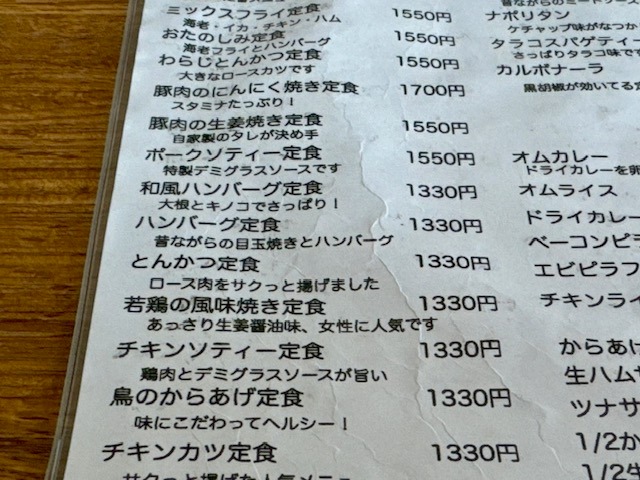 ミックスフライ定食 1550円
海老・イカ・チキン・ハム
おたのしみ定食 1550円
海老フライとハンバーグ
わらじとんかつ定食 1550円
大きなロースカツです
豚肉のにんにく焼き定食 1700円
スタミナたっぷり！
豚肉の生姜焼き定食 1550円
自家製のタレが決め手
ポークソティー定食 1550円
特製デミグラスソースです
和風ハンバーグ定食 1330円
大根とキノコでさっぱり！
ハンバーグ定食 1330円
昔ながらの目玉焼きとハンバーグ
とんかつ定食 1330円
ロース肉をサクっと揚げました
若鶏の風味焼き定食 1330円
あっさり生姜醤油味、女性に人気です
チキンソティー定食 1330円
鶏肉とデミグラスソースが旨い
鳥のからあげ定食 1330円
味にこだわってヘルシー！
チキンカツ定食 1330円
サクっと揚げた人気メニュー
ナポリタン
ケチャップ味がなつか
タラコスパゲティー
さっぱりタラコ味で
カルボナーラ
黒胡椒が効いてる定
オムカレー
ドライカレーを卵
オムライス
ドライカレー
ベーコンピラ
エビピラフ
チキンライ
からあげ
生ハムサ
ツナサ
1/2か
1/2生